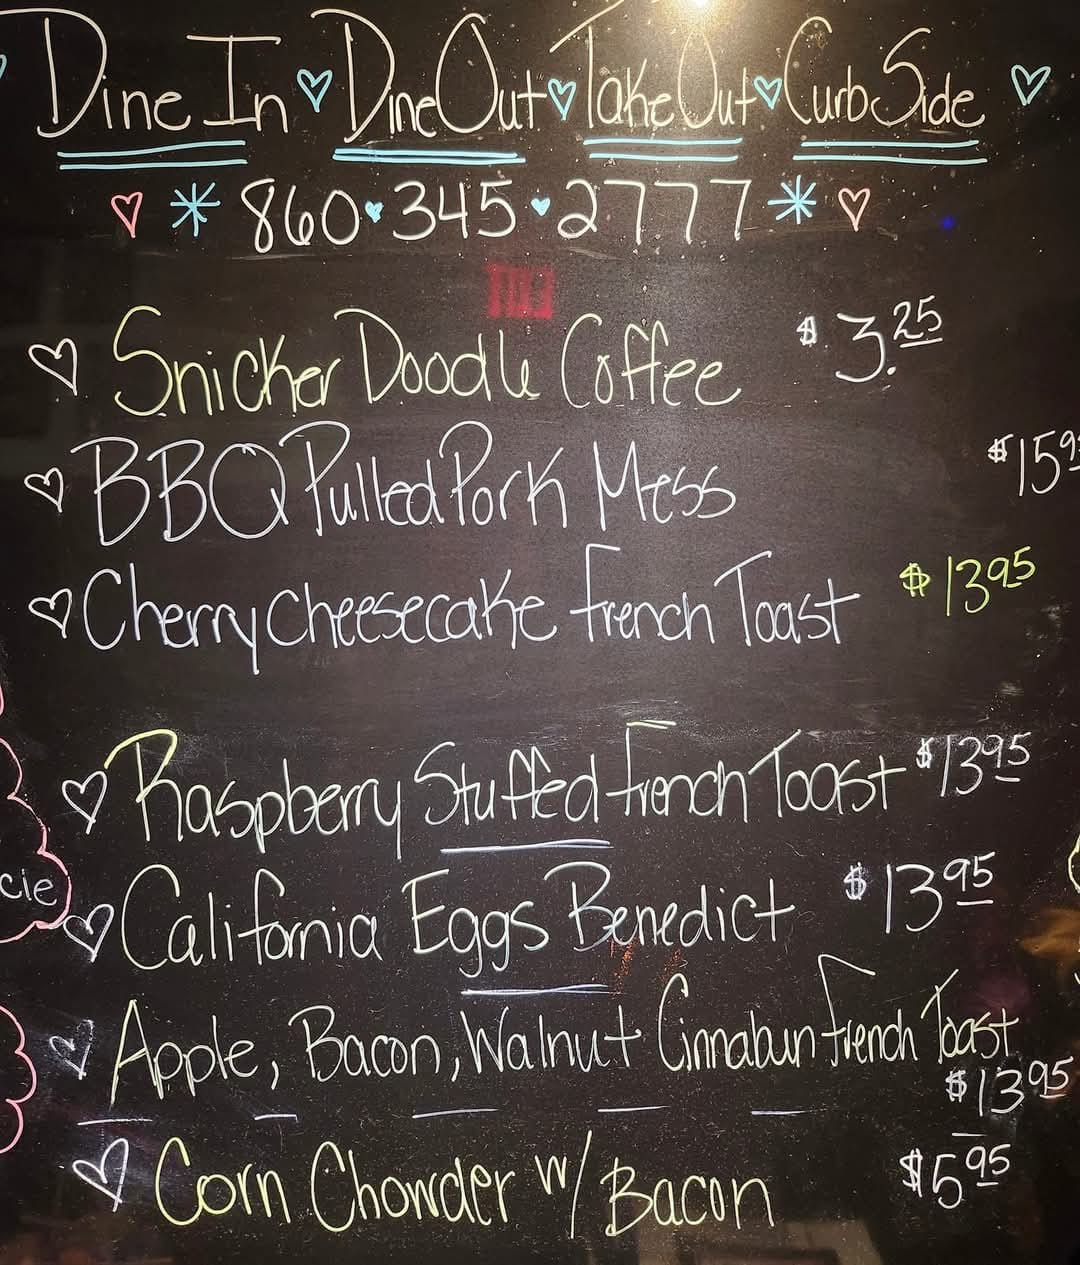 Dine In Dine Out Take Out Curb Side
860 345 2777
Snicker Doodle Coffee $3.25
BBQ Pulled Pork Mess $159
Cherry Cheesecake French Toast $1395
Raspberry Stuffed French Toast $1395
California Eggs Benedict $1395
cie
Apple, Bacon, Walnut Cinnabun French Toast
$1395
Corn Chowder w/ Bacon $595